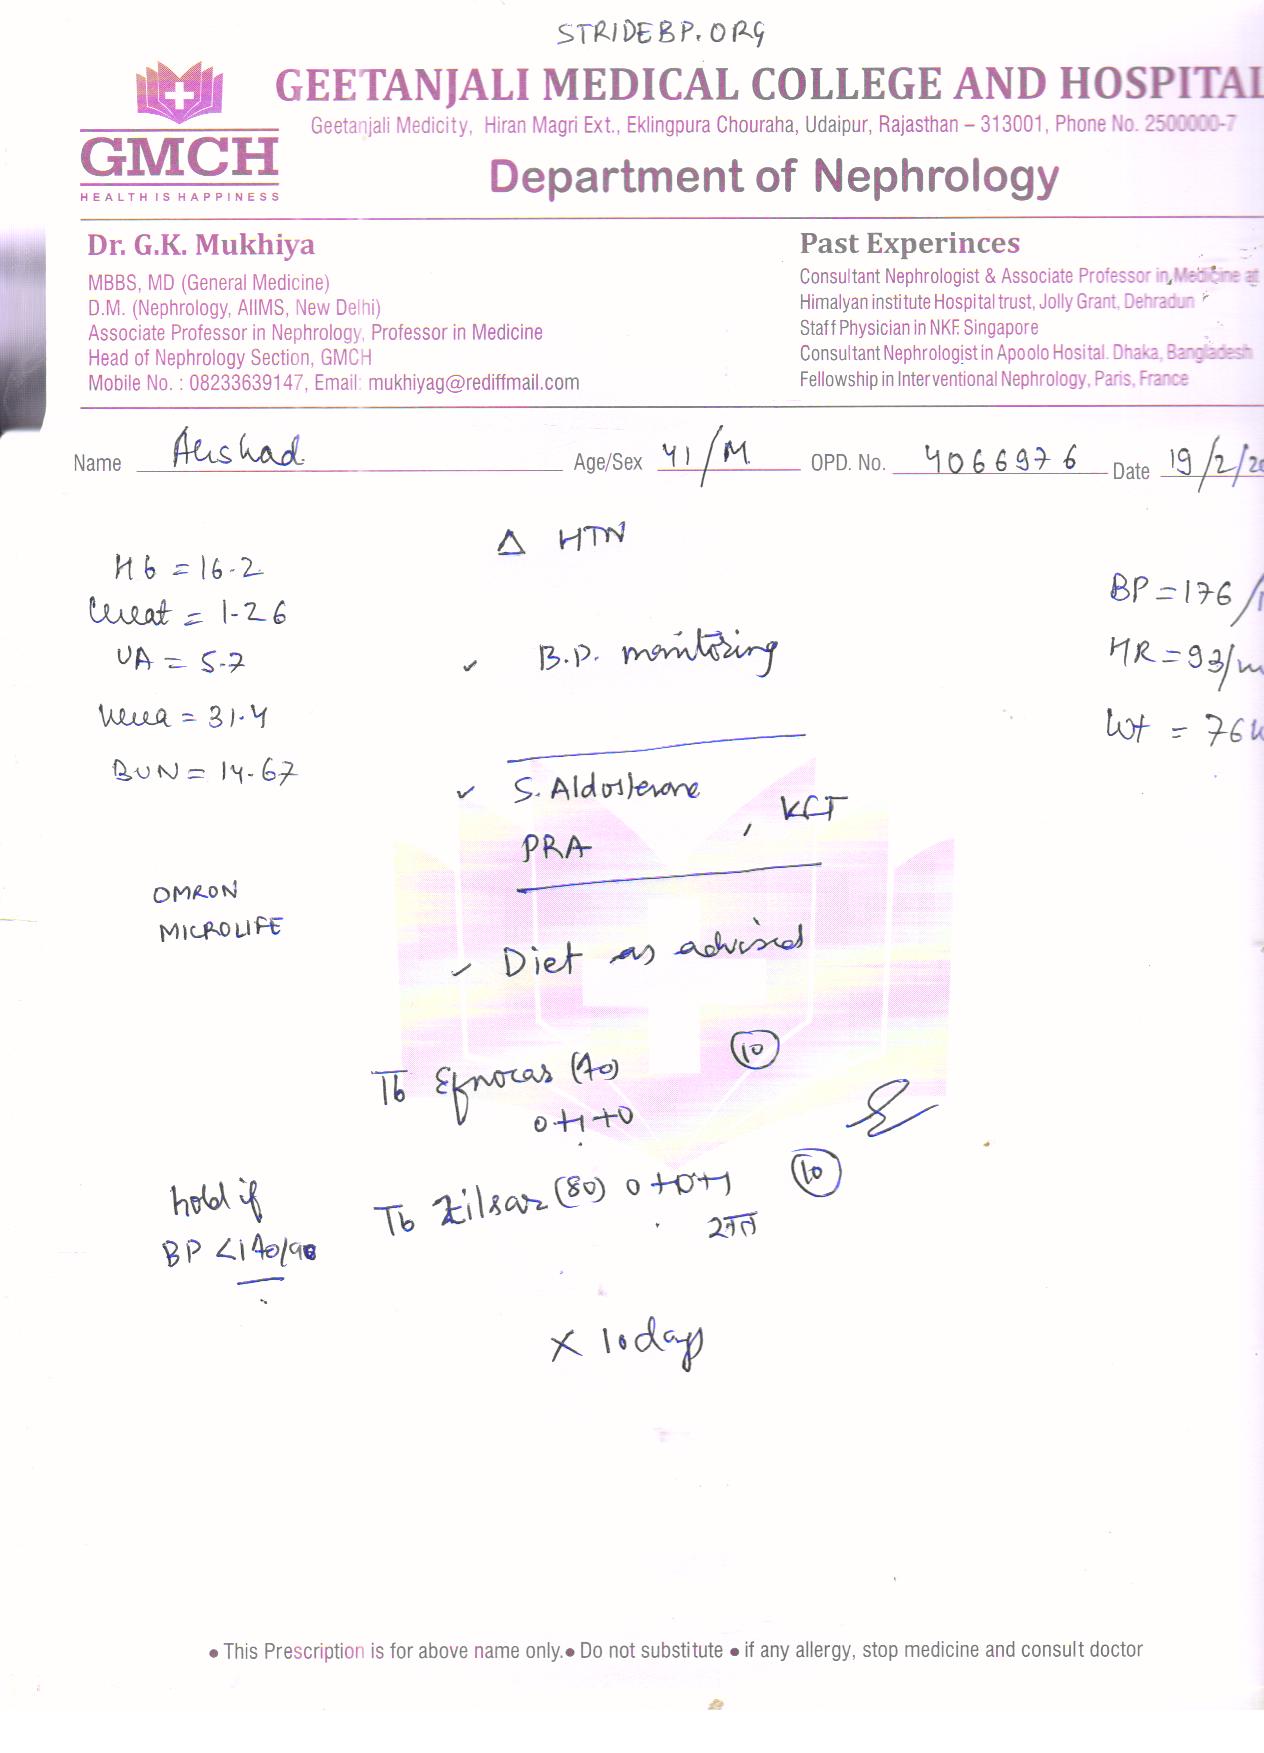 STRIDEBP.ORG
GEETANJALI MEDICAL COLLEGE AND HOSPITAL
Geetanjali Medicity, Hiran Magri Ext., Eklingpura Chouraha, Udaipur, Rajasthan – 313001, Phone No. 2500000-7
GMCH
HEALTH IS HAPPINESS
Department of Nephrology
Dr. G.K. Mukhiya
MBBS, MD (General Medicine)
D.M. (Nephrology, AIIMS, New Delhi)
Associate Professor in Nephrology, Professor in Medicine
Head of Nephrology Section, GMCH
Mobile No. : 08233639147, Email: mukhiyag@rediffmail.com
Past Experinces
Consultant Nephrologist & Associate Professor in, Medicine at
Himalyan institute Hospital trust, Jolly Grant, Dehradun
Staff Physician in NKF. Singapore
Consultant Nephrologist in Apoolo Hosital. Dhaka, Bangladesh
Fellowship in Interventional Nephrology, Paris, France
Name Age/Sex 41/M OPD. No. 4066976 Date 19/2/20
Δ HTN
Hb = 16.2
Creat = 1.26
UA = 5.7
Urea = 31.4
BUN = 14.67
BP = 176/
HR = 93/m
Wt = 76
✓ B.P. monitoring
✓ S. Aldosterone
PRA , KCT
OMRON
MICROLIFE
✓ Diet as advised
Tb Efnocar (40) 10
0+1+0
hold if
BP <140/90
Tb Zilsar (80) 0+0+1 10
रात
x 10 days
• This Prescription is for above name only. • Do not substitute • if any allergy, stop medicine and consult doctor